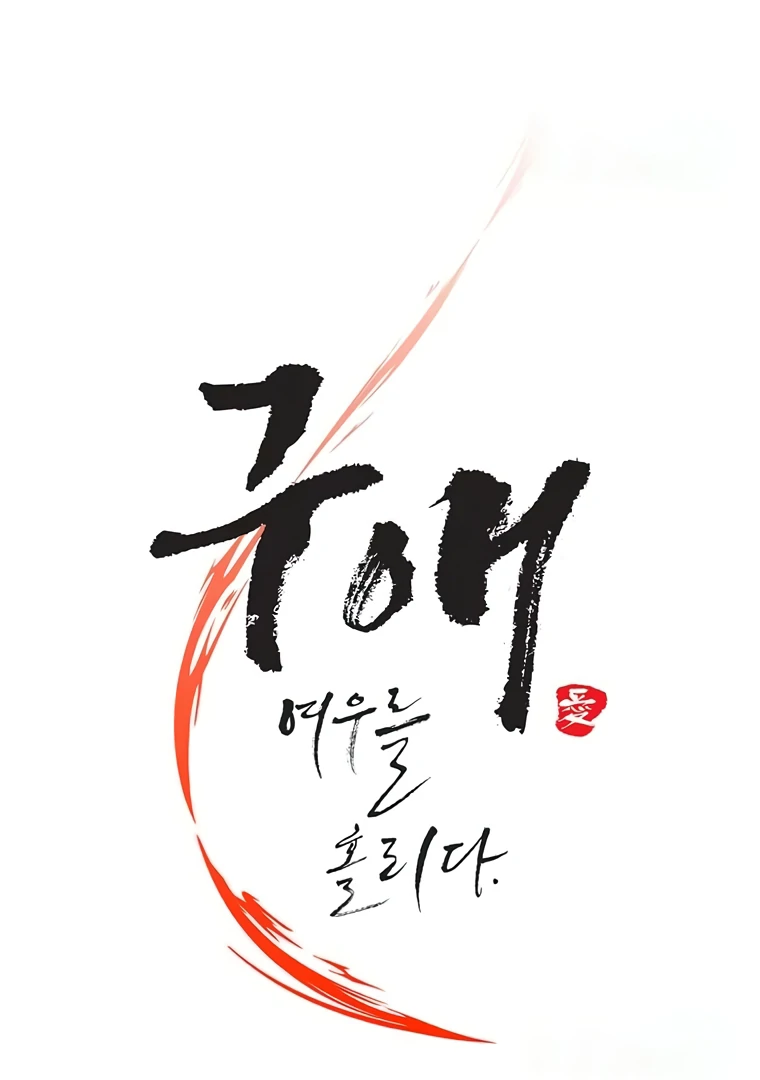 구애
愛
여우를
홀리다.